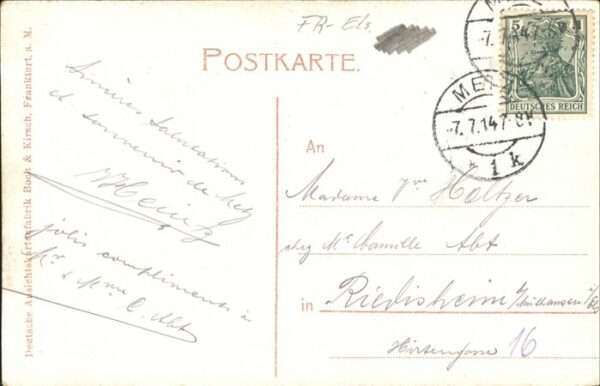 FR- Els.
POSTKARTE.
5
5
DEUTSCHES REICH
METZ
-7.7.14 7-8V
* 1 k
Deutsche Ansichtskartenfabrik Bock & Kirsch, Frankfurt a. M.
Sincères Salutations
et souvenir de Metz
Heintz
jolis compliments à
Mr & Mme C. Abt
An
Madame Holtzer
chez Mr Camille Abt
in Riedisheim
Hirtengasse 16